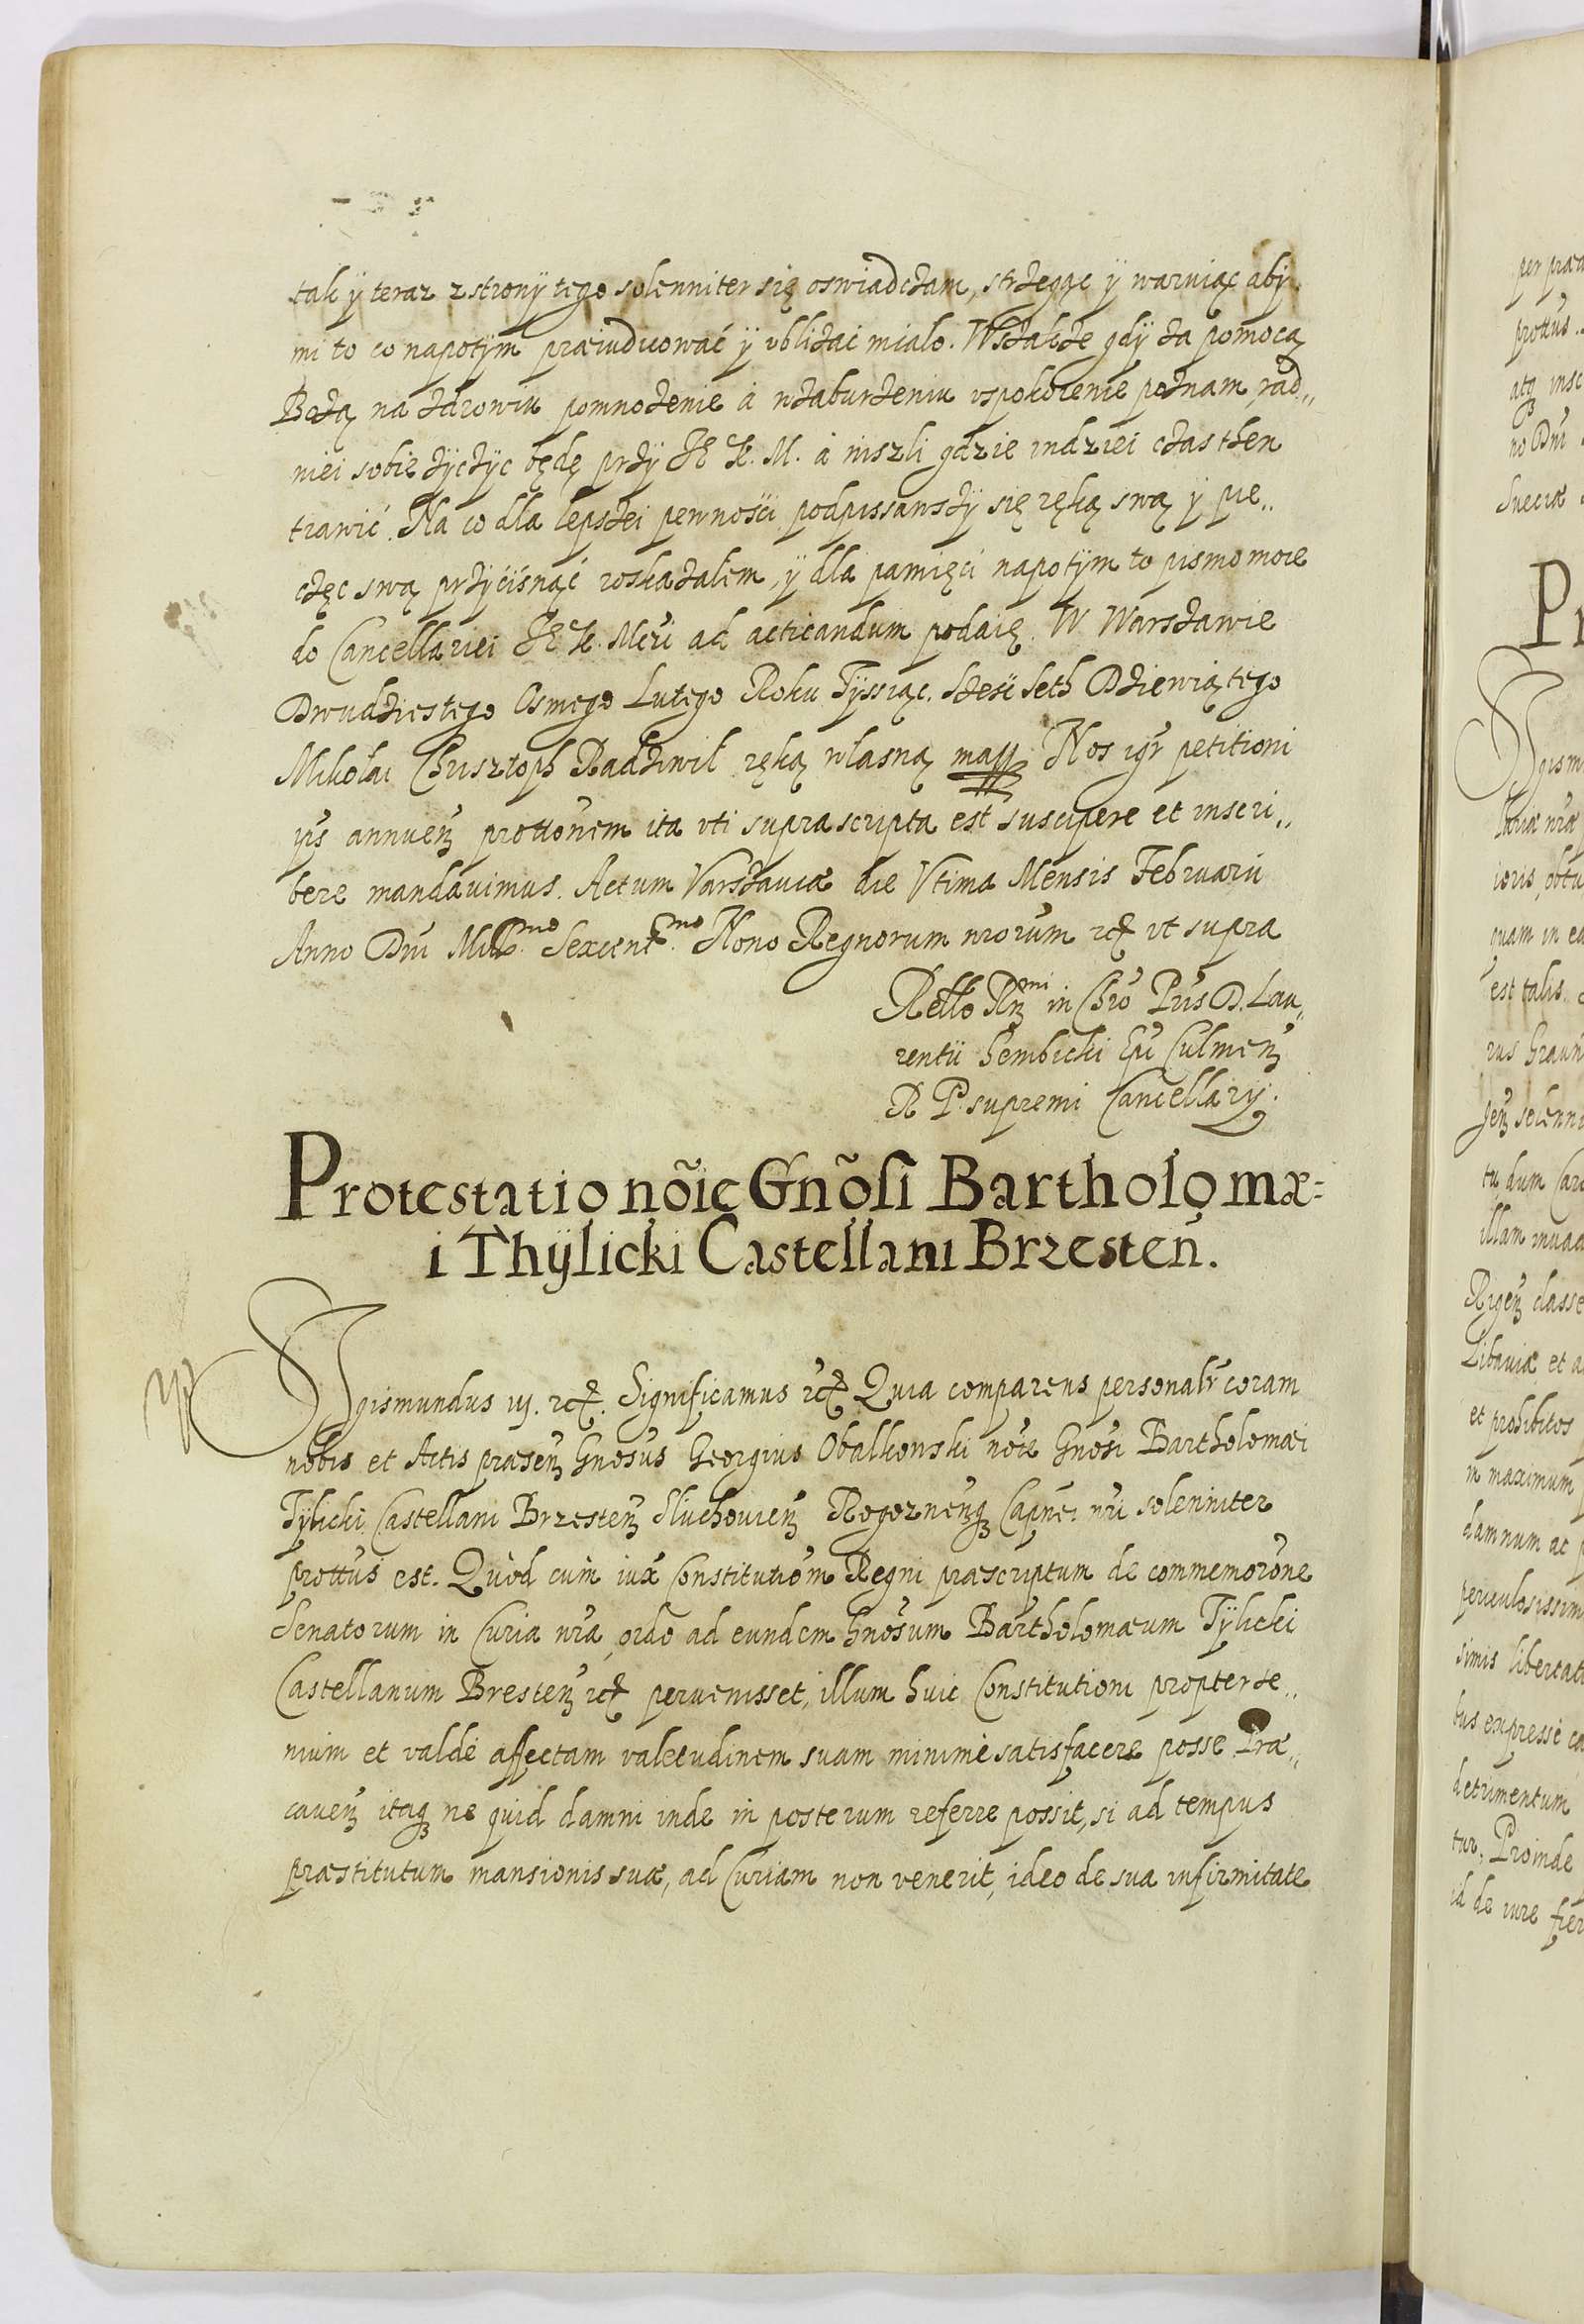 tak ÿ teraz z stronÿ tego solenniter się oswiadcżam, strżegąc ÿ waruiąc abÿ
mi to co napotÿm præiudicować ÿ vbliżać miało. Wszakże gdÿ za pomocą
Bożą na zdrowiu pomnożenie á wzaburżeniu vspokoienie poznam, rad„
niei sobie życżÿc będę prżÿ JE K. M. á niszli gdzie indziei cżas then
trawić. Na co dla lepszei pewnosći podpissawszÿ się ręką swą ÿ pie„
cżęc swą prżÿćisnąć roskazałem, ÿ dla pamięći napotÿm to pismo moie
do Cancellariei JE K. Mći ad acticandum podaię. W Warszawie
Dwudziestego Osmego Lutego Roku Tÿssiąc. szesć seth Dziewiątego
Mikołai Chrisztoph Radziwił ręką własną mapp Nos igr petitioni
ips annuen prottonem ita vti suprascripta est suscipere et inscri„
bere mandauimus. Actum Varszauiæ die Vltima Mensis Februarii
Anno Dni Mill.mo Sexcent.mo Nono Regnorum nrorum etc vt supra
Rello Rmi in Chro Pris D. Lau„
rentii Gembicki Epi Culmen
R P. supremi Cancellarÿ.
Protestatio nõie Gnõsi Bartholomæ=
i Thÿlicki Castellani Brzesteñ.
Sigismundus iij. etc. Significamus etc Quia comparens personalr coram
nobis et Actis præsen Gnosus Georgius Obalkowski noie Gnosi Bartholomæi
Tÿlicki Castellani Brzesten Sluchouien Rogoznenq Capnei nri solenniter
prottus est. Quòd cum iux Constitutiom Regni præscriptum de commemorone
Senatorum in Curia nra, ordo ad eundem Gnosum Bartholomæum Tÿlicki
Castellanum Bresten etc peruenisset, illum huic Constitutioni propter te„
nuim et valdè affectam valetudinem suam minimè satisfacere posse Præ„
cauen itaq ne quid damni inde in posterum referre possit, si ad tempus
præstitutum mansionis suæ, ad Curiam non venerit, ideo de sua infirmitate